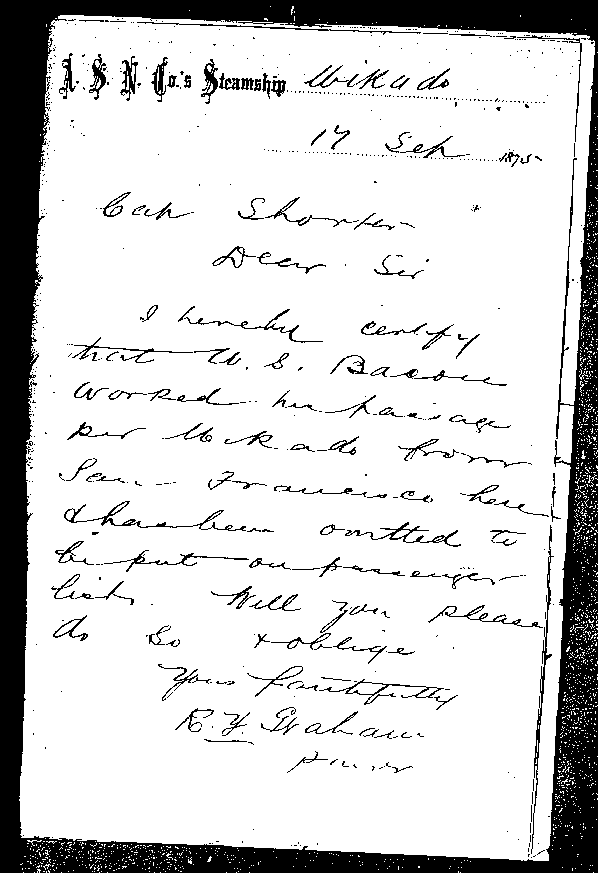 A. S. N. Co.'s Steamship Mikado
17 Sep 1875
Capn Shorter
Dear Sir
I hereby certify
that W. S. Bacon
worked his passage
per Mikado from
San Francisco here
& has been omitted to
be put on passenger
lists. Will you please
do so & oblige
Yours faithfully
R. Y. Graham